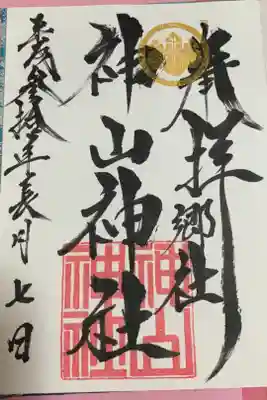 奉拝郷社
神山神社
平成参拾年長月七日
神山
神社